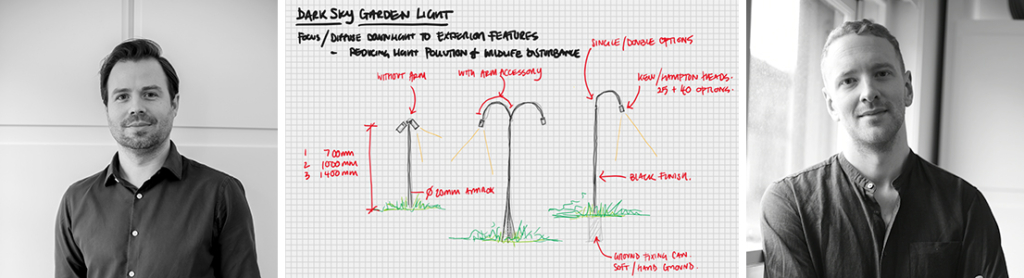 DARK SKY GARDEN LIGHT
FOCUS/DIFFUSE DOWNLIGHT TO EXTERIOR FEATURES
- REDUCING LIGHT POLLUTION & WILDLIFE DISTURBANCE
SINGLE/DOUBLE OPTIONS
WITHOUT ARM
WITH ARM ACCESSORY
KEW/HAMPTON HEADS.
25 + 40 OPTIONS.
1 700mm
2 1000mm
3 1400mm
Ø 20mm APPROX
BLACK FINISH.
GROUND FIXING CAN
SOFT/HARD GROUND.